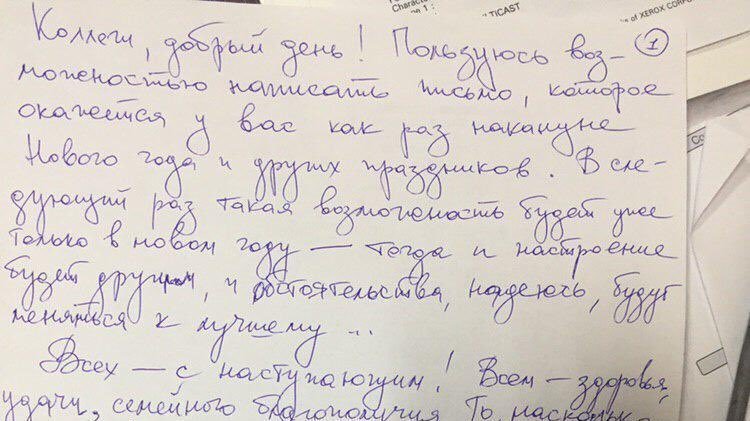 Character
e 1:
TICAST
s of XEROX CORPO
1
Коллеги, добрый день! Пользуюсь воз-
можностью написать письмо, которое
окажется у вас как раз накануне
Нового года и других праздников. В сле-
дующий раз такая возможность будет уже
только в новом году — тогда и настроение
будет другим, и обстоятельства, надеюсь, будут
меняться к лучшему ...
Всех — с наступающим! Всем — здоровья,
удачи, семейного благополучия. То, насколько